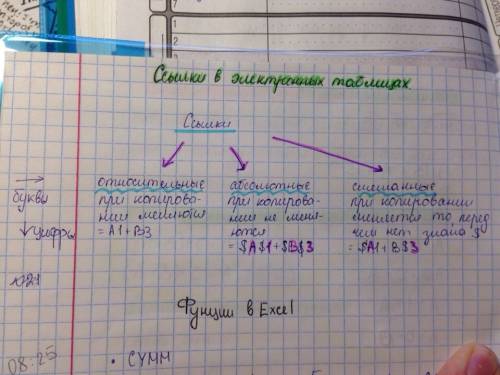 Ссылки в электронных таблицах
Ссылки
относительные
при копирова-
нии меняются
= A1 + B3
абсолютные
при копирова-
нии не меня-
ются
= $A$1 + $B$3
смешанные
при копировании
меняется то, перед
чем нет знака $
= $A1 + B$3
буквы
цифры
№21
Фунции в Excel
08:25
• СУММ
7
1
2